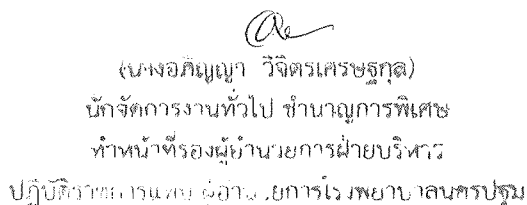 (นางอภิญญา วิจิตรเศรษฐกุล)
นักจัดการงานทั่วไป ชำนาญการพิเศษ
ทำหน้าที่รองผู้อำนวยการฝ่ายบริหาร
ปฏิบัติราชการแทน ผู้อำนวยการโรงพยาบาลนครปฐม